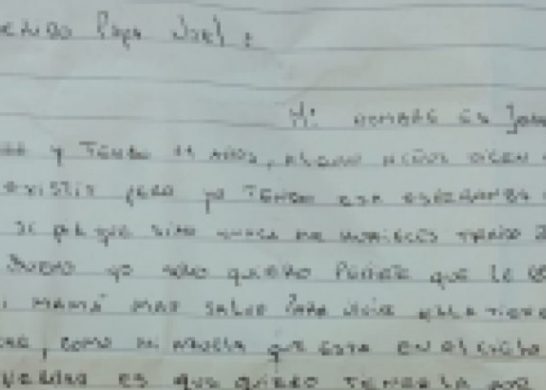 Papa Noel:
Mi NOMBRE ES
y TENGO 11 AÑOS, ALGUNOS NIÑOS DICEN
EXISTIS PERO yo TENGO ESA ESPERANZA
SI PORQUE SINO NUNCA ME HUBIESES TRAIDO
BUENO yo SOLO QUIERO PEDIRTE QUE LE
MAMÁ MAS SALUD PARA VIVIR ELLA TIENE
COMO MI ABUELA QUE ESTA EN EL CIELO
ES QUE QUIERO TENERLA POR